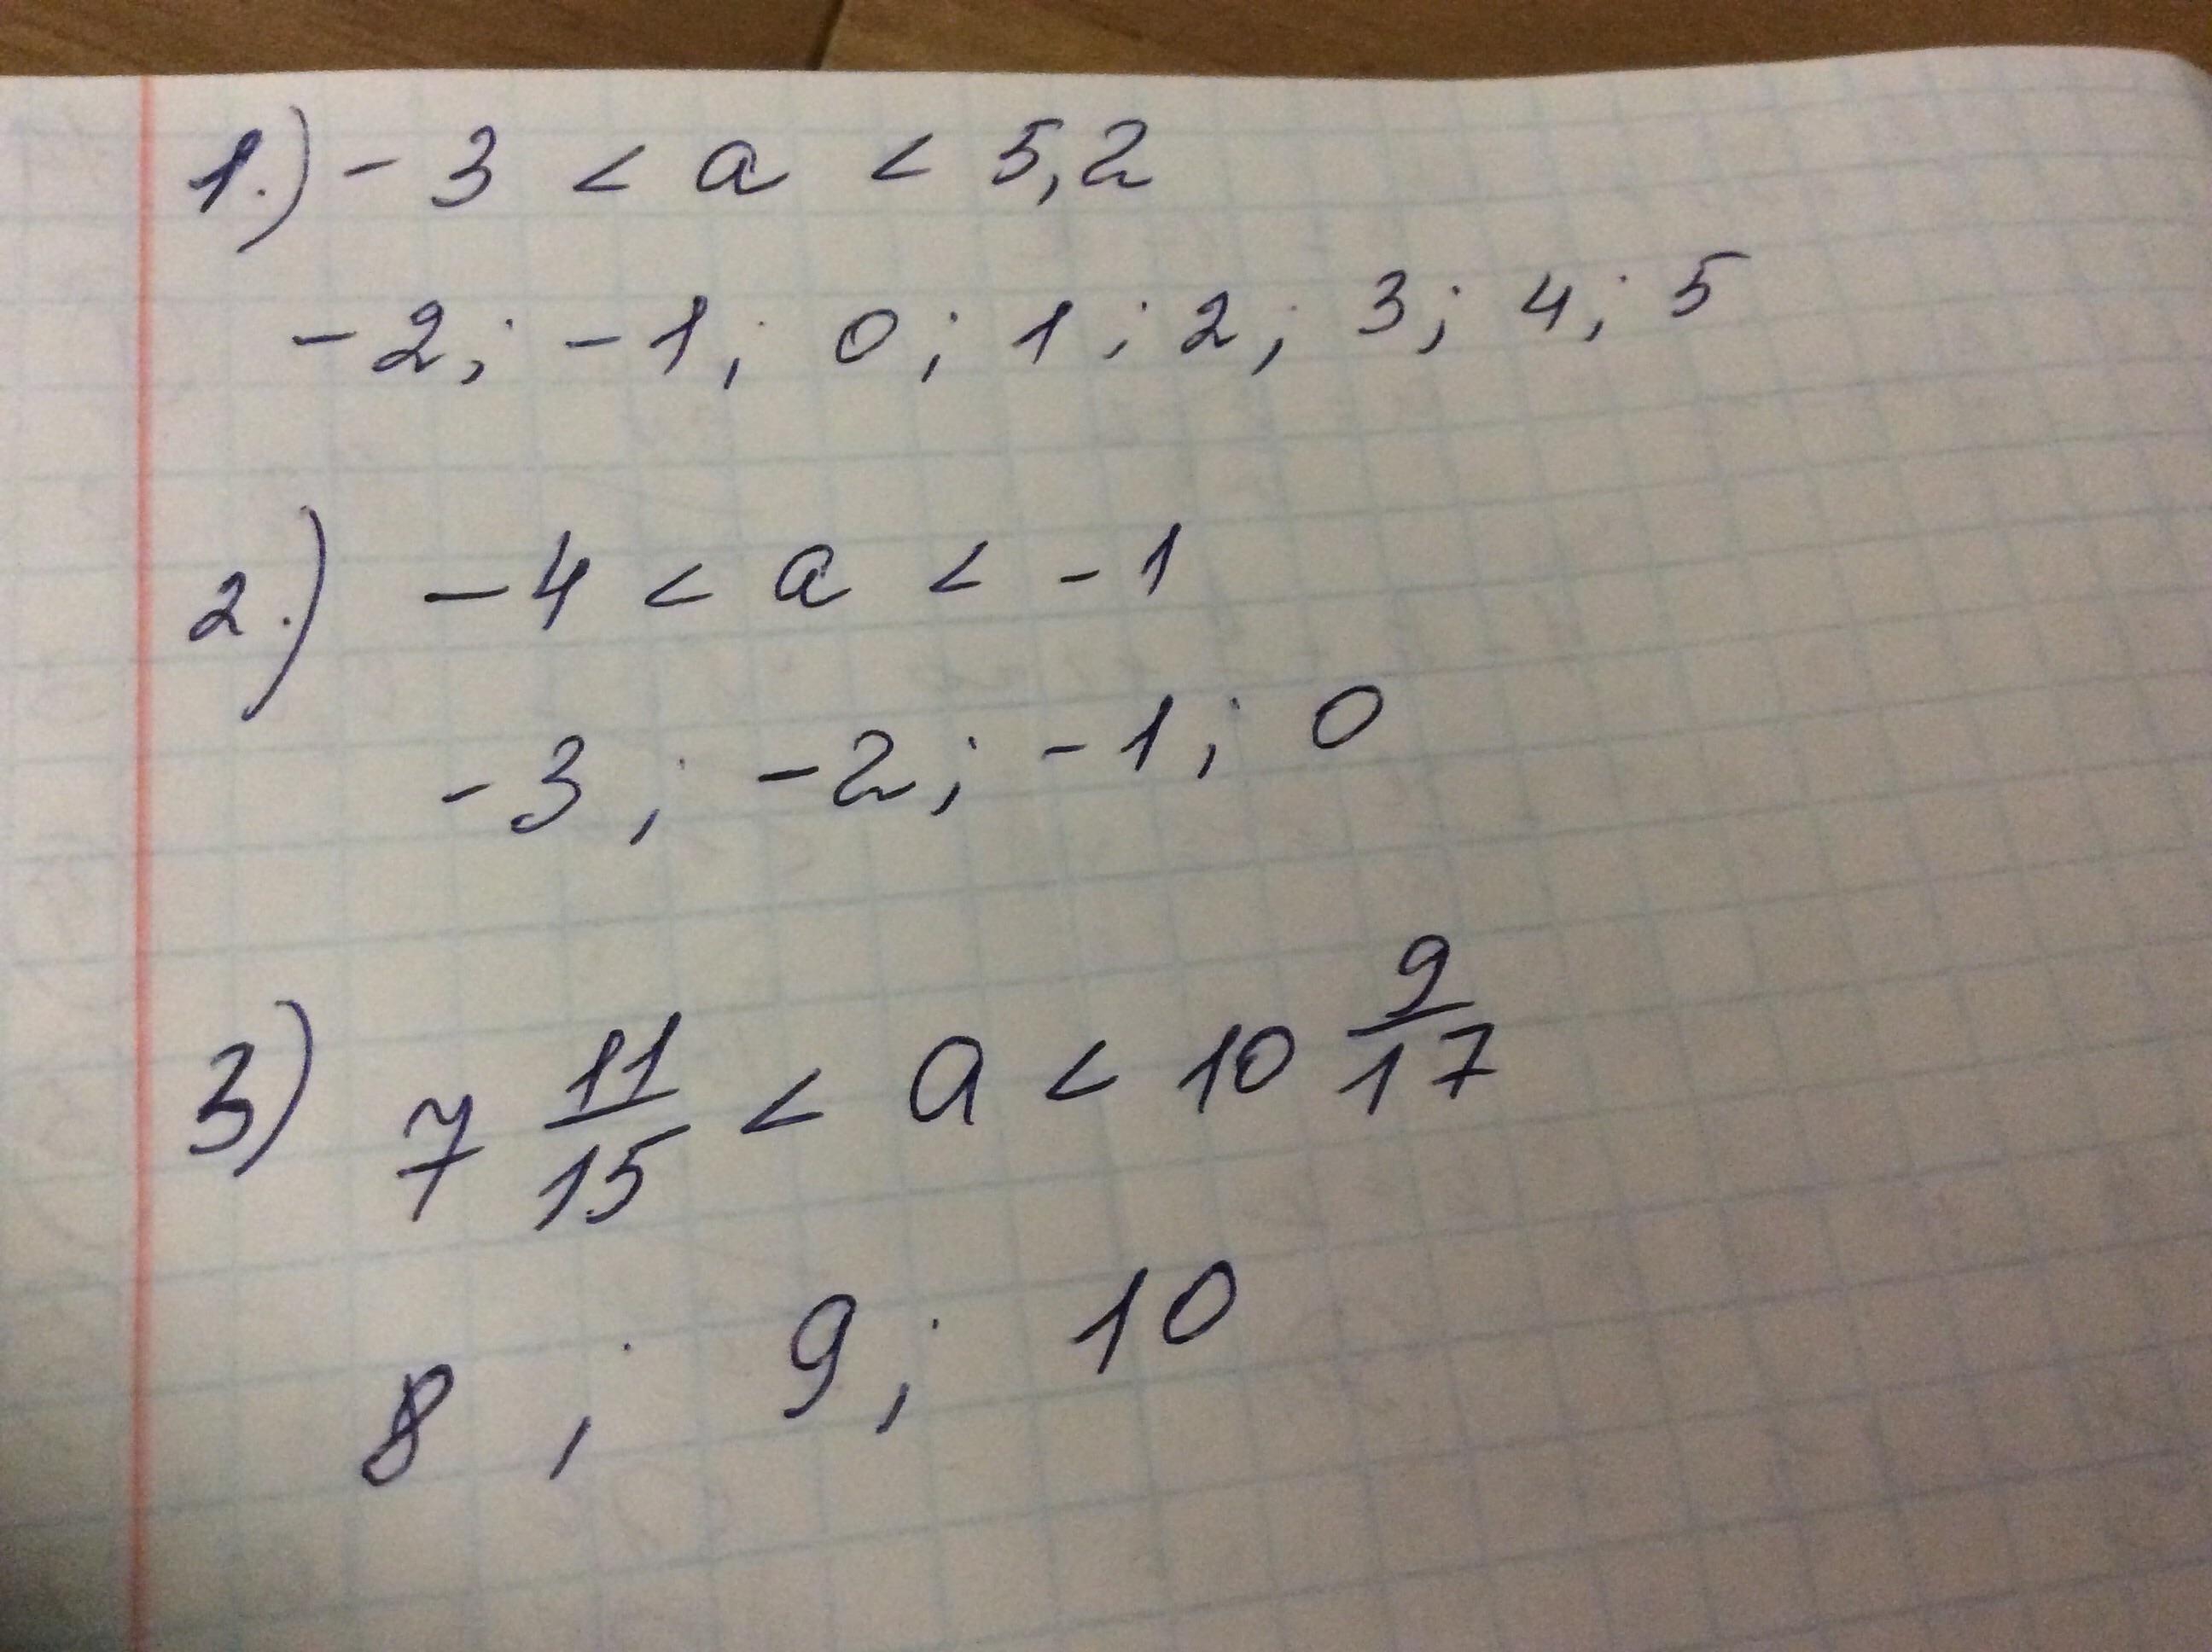 1.) - 3 < a < 5,2
- 2; - 1; 0; 1; 2; 3; 4; 5
2.) - 4 < a < - 1
- 3; - 2; - 1; 0
3) 7 11/15 < a < 10 9/17
8; 9; 10